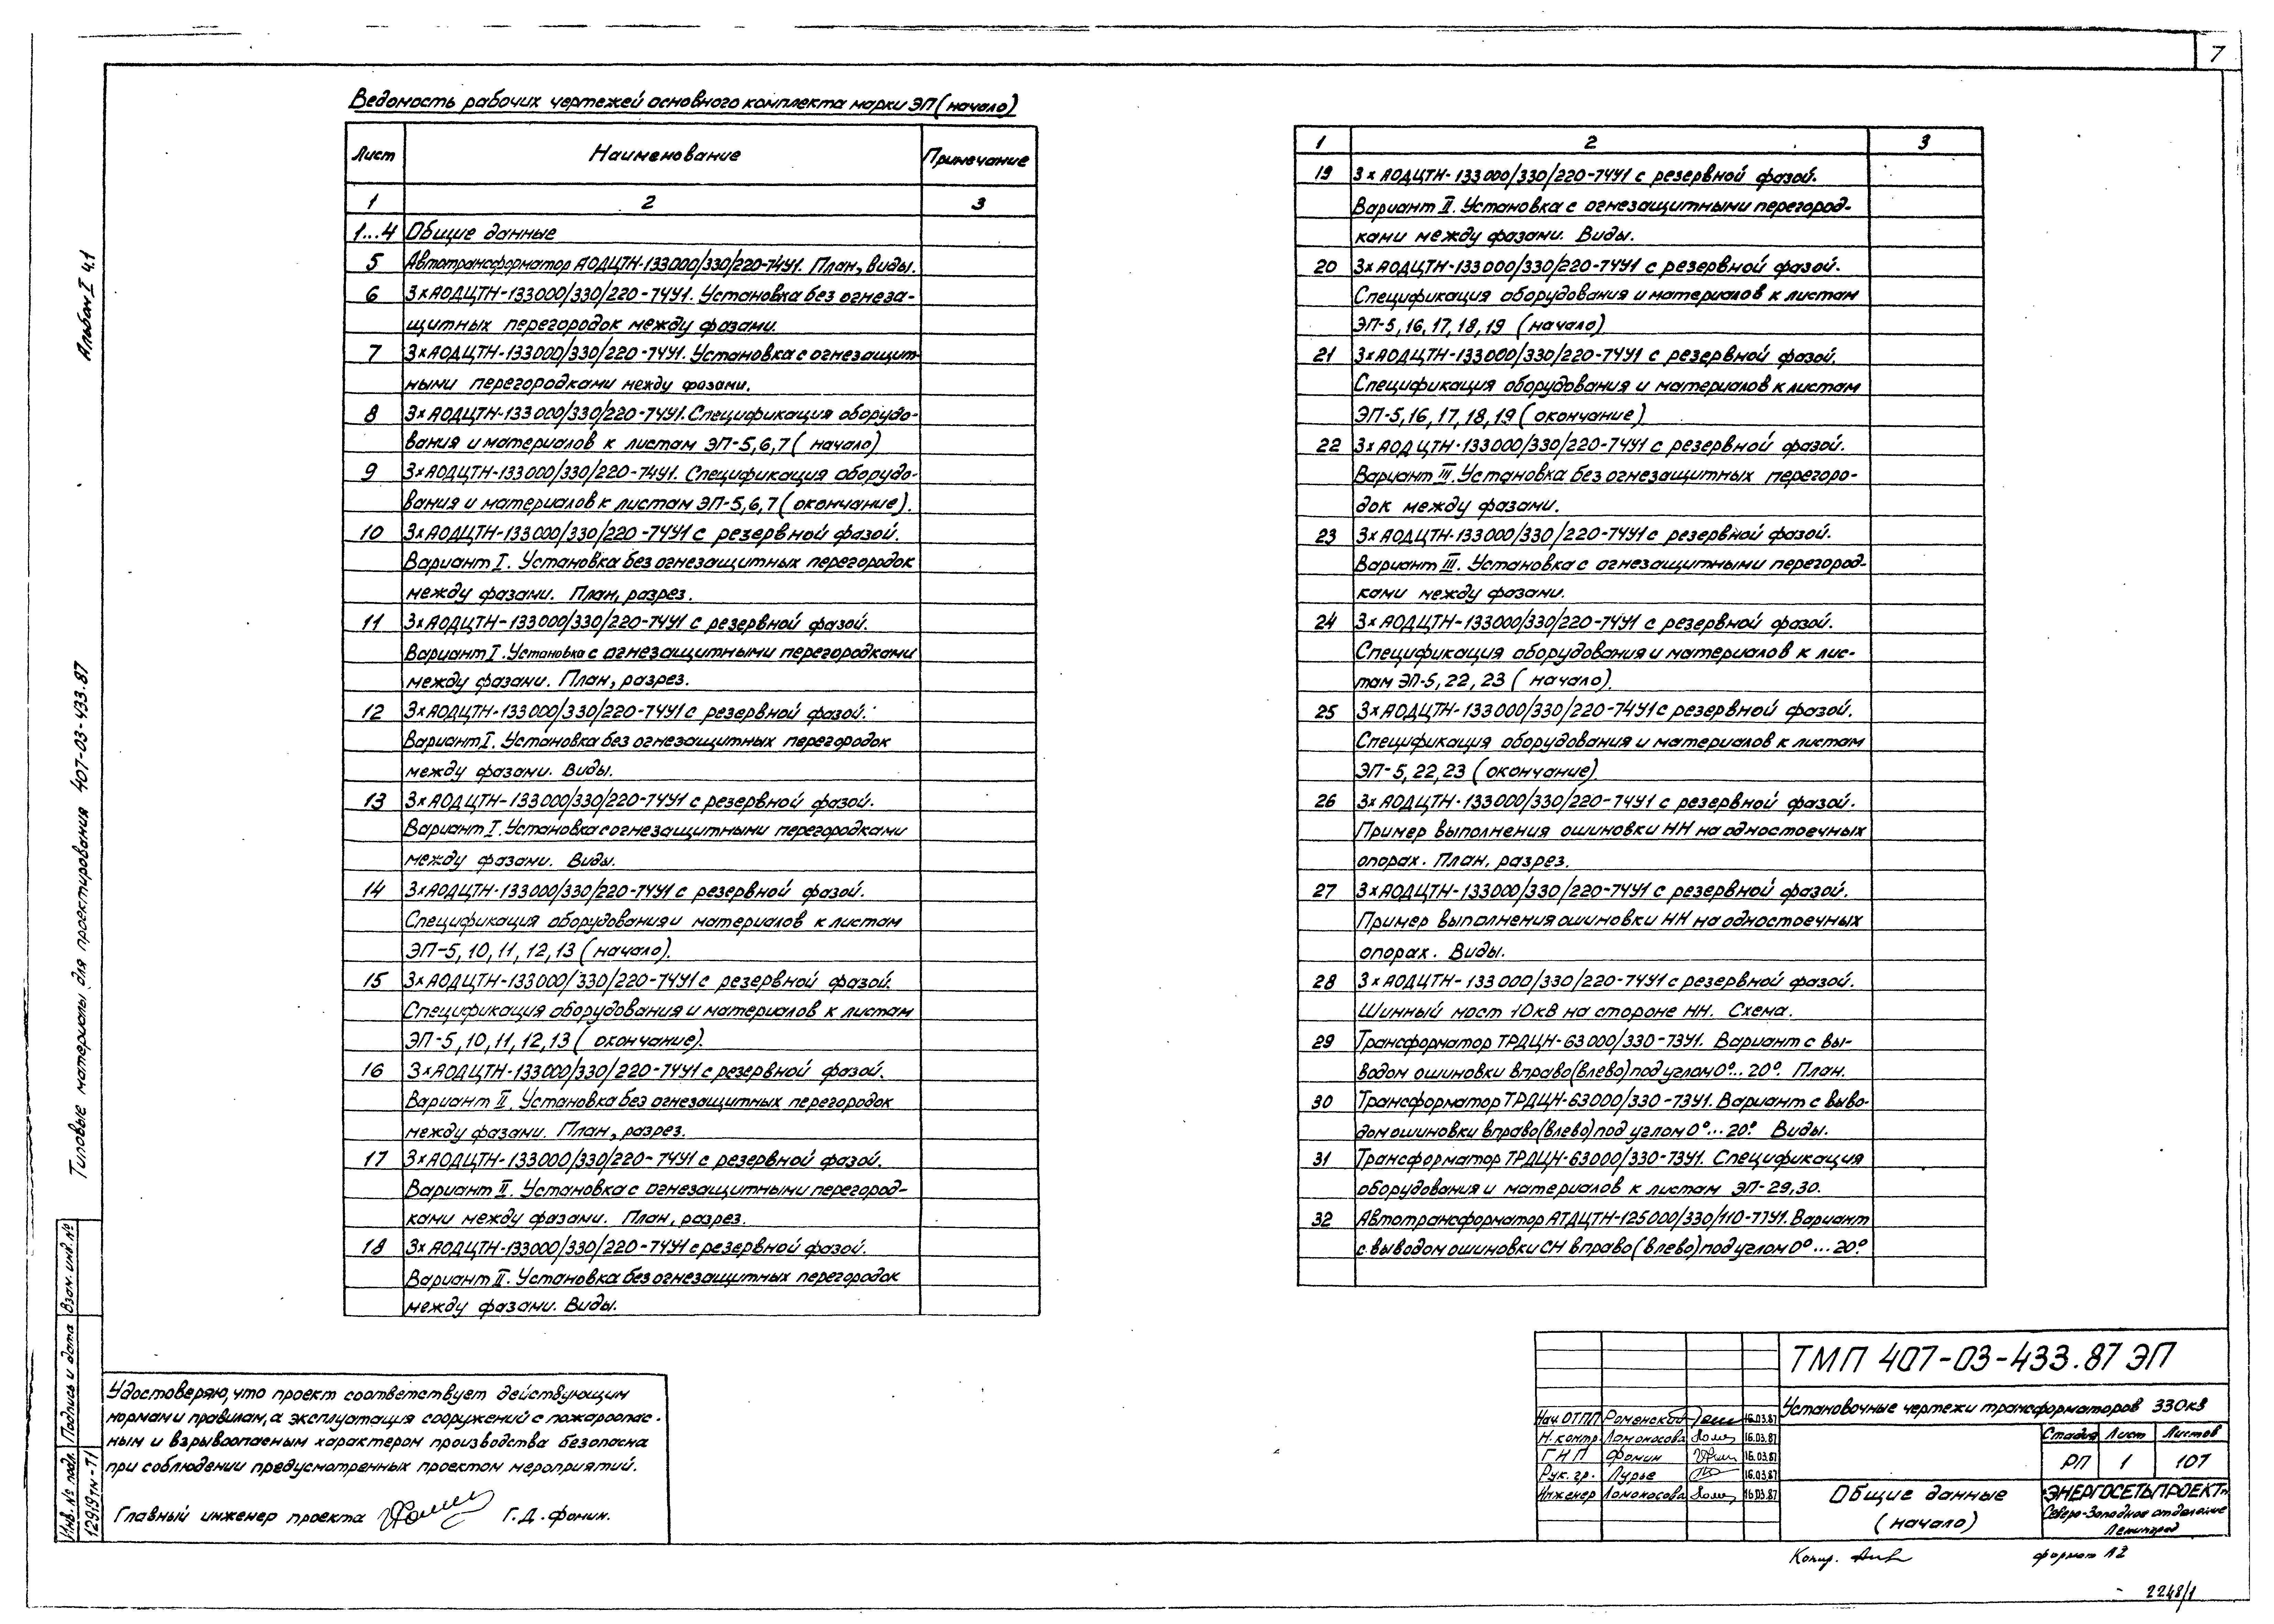 7
Ведомость рабочих чертежей основного комплекта марки ЭП (начало)
Лист Наименование Примечание
1 2 3
1...4 Общие данные
5 Автотрансформатор АОДЦТН-133000/330/220-74У1. План, виды.
6 3×АОДЦТН-133000/330/220-74У1. Установка без огнеза-
щитных перегородок между фазами.
7 3×АОДЦТН-133000/330/220-74У1. Установка с огнезащит-
ными перегородками между фазами.
8 3×АОДЦТН-133000/330/220-74У1. Спецификация оборудо-
вания и материалов к листам ЭП-5,6,7 (начало)
9 3×АОДЦТН-133000/330/220-74У1. Спецификация оборудо-
вания и материалов к листам ЭП-5,6,7 (окончание).
10 3×АОДЦТН-133000/330/220-74У1 с резервной фазой.
Вариант I. Установка без огнезащитных перегородок
между фазами. План, разрез.
11 3×АОДЦТН-133000/330/220-74У1 с резервной фазой.
Вариант I. Установка с огнезащитными перегородками
между фазами. План, разрез.
12 3×АОДЦТН-133000/330/220-74У1 с резервной фазой.
Вариант I. Установка без огнезащитных перегородок
между фазами. Виды.
13 3×АОДЦТН-133000/330/220-74У1 с резервной фазой.
Вариант I. Установка с огнезащитными перегородками
между фазами. Виды.
14 3×АОДЦТН-133000/330/220-74У1 с резервной фазой.
Спецификация оборудования и материалов к листам
ЭП-5, 10, 11, 12, 13 (начало).
15 3×АОДЦТН-133000/330/220-74У1 с резервной фазой.
Спецификация оборудования и материалов к листам
ЭП-5, 10, 11, 12, 13 (окончание).
16 3×АОДЦТН-133000/330/220-74У1 с резервной фазой.
Вариант II. Установка без огнезащитных перегородок
между фазами. План, разрез.
17 3×АОДЦТН-133000/330/220-74У1 с резервной фазой.
Вариант II. Установка с огнезащитными перегород-
ками между фазами. План, разрез.
18 3×АОДЦТН-133000/330/220-74У1 с резервной фазой.
Вариант II. Установка без огнезащитных перегородок
между фазами. Виды.
1 2 3
19 3×АОДЦТН-133000/330/220-74У1 с резервной фазой.
Вариант II. Установка с огнезащитными перегород-
ками между фазами. Виды.
20 3×АОДЦТН-133000/330/220-74У1 с резервной фазой.
Спецификация оборудования и материалов к листам
ЭП-5, 16, 17, 18, 19 (начало)
21 3×АОДЦТН-133000/330/220-74У1 с резервной фазой.
Спецификация оборудования и материалов к листам
ЭП-5, 16, 17, 18, 19 (окончание)
22 3×АОДЦТН-133000/330/220-74У1 с резервной фазой.
Вариант III. Установка без огнезащитных перегоро-
док между фазами.
23 3×АОДЦТН-133000/330/220-74У1 с резервной фазой.
Вариант III. Установка с огнезащитными перегород-
ками между фазами.
24 3×АОДЦТН-133000/330/220-74У1 с резервной фазой.
Спецификация оборудования и материалов к лис-
там ЭП-5, 22, 23 (начало).
25 3×АОДЦТН-133000/330/220-74У1 с резервной фазой.
Спецификация оборудования и материалов к листам
ЭП-5, 22, 23 (окончание)
26 3×АОДЦТН-133000/330/220-74У1 с резервной фазой.
Пример выполнения ошиновки НН на одностоечных
опорах. План, разрез.
27 3×АОДЦТН-133000/330/220-74У1 с резервной фазой.
Пример выполнения ошиновки НН на одностоечных
опорах. Виды.
28 3×АОДЦТН-133000/330/220-74У1 с резервной фазой.
Шинный мост 10кВ на стороне НН. Схема.
29 Трансформатор ТРДЦН-63000/330-73У1. Вариант с вы-
водом ошиновки вправо (влево) под углом 0°...20°. План.
30 Трансформатор ТРДЦН-63000/330-73У1. Вариант с выво-
дом ошиновки вправо (влево) под углом 0°...20°. Виды.
31 Трансформатор ТРДЦН-63000/330-73У1. Спецификация
оборудования и материалов к листам ЭП-29,30.
32 Автотрансформатор АТДЦТН-125000/330/110-77У1. Вариант
с выводом ошиновки СН вправо (влево) под углом 0°...20°.
Альбом I ч.1
Типовые материалы для проектирования 407-03-433.87
Взам. инв. №
Подпись и дата
Инв. № подл.
12919тм-Т1
Удостоверяю, что проект соответствует действующим
нормам и правилам, а эксплуатация сооружений с пожароопас-
ным и взрывоопасным характером производства безопасна
при соблюдении предусмотренных проектом мероприятий.
Главный инженер проекта Г.Д. Фомин.
ТМП 407-03-433.87 ЭП
Установочные чертежи трансформаторов 330кВ
Нач. ОТПП Роменский 16.03.87
Н. контр. Ломоносова 16.03.87
ГНП Фомин 16.03.87
Рук. гр. Лурье 16.03.87
Инженер Ломоносова 16.03.87
Стадия Лист Листов
РП 1 107
Общие данные
(начало)
"ЭНЕРГОСЕТЬПРОЕКТ"
Северо-Западное отделение
Ленинград
Копир.
формат А2
2248/1